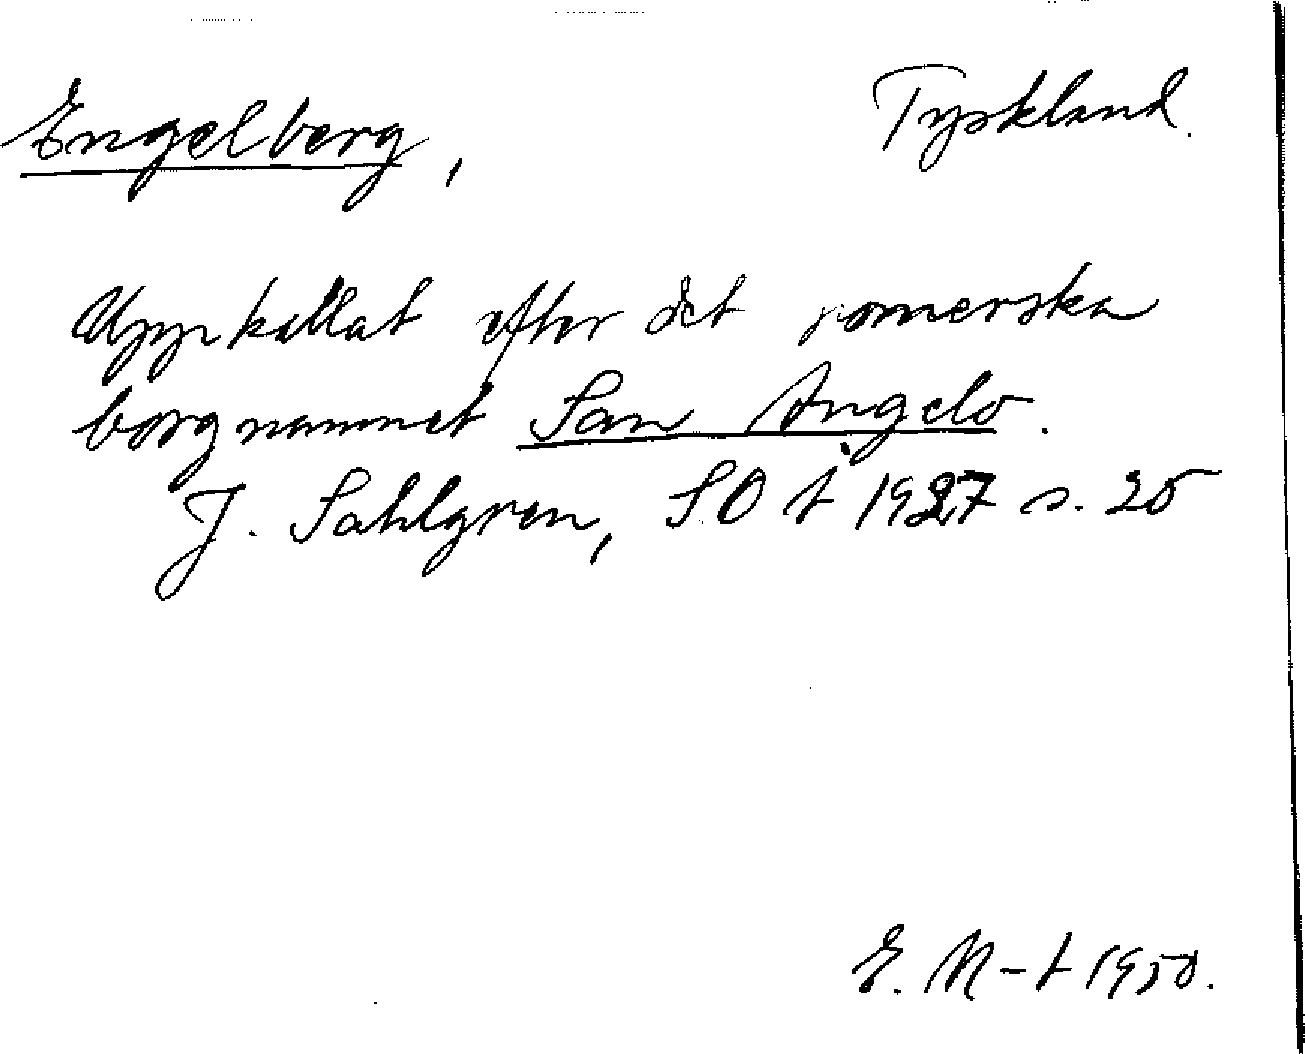 Engelberg, Tyskland.
Uppkallat efter det romerska
borgnamnet San Angelo.
J. Sahlgren, SOÅ 1927 s. 25
E. N-t 1950.